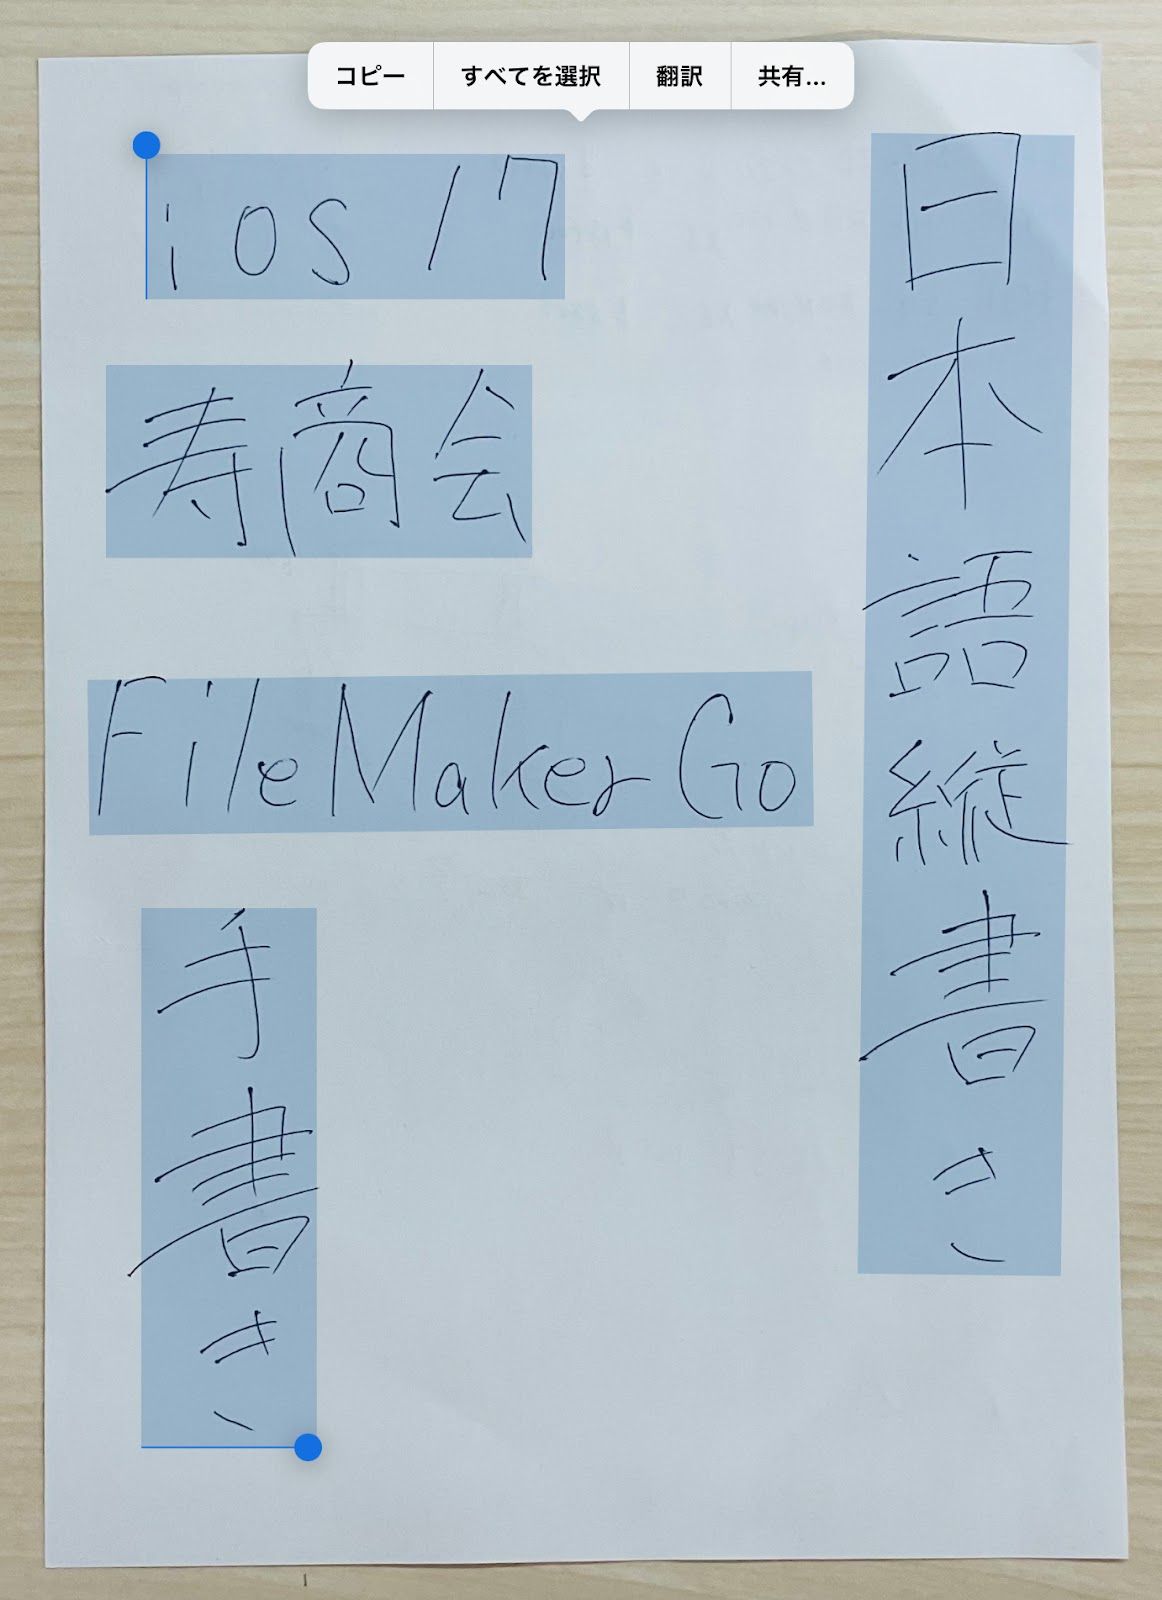 コピー
すべてを選択
翻訳
共有...
iOS 17
寿商会
FileMaker Go
手書き
日本語縦書き